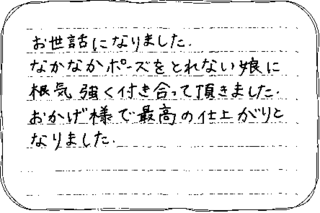 お世話になりました.
なかなかポーズをとれない娘に
根気強く付き合って頂きました.
おかげ様で最高の仕上がりと
なりました.